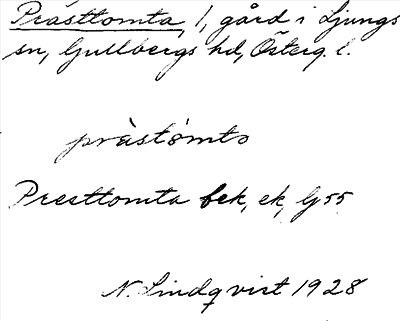 Prästtomta 1, gård i Ljungs
sn, Gullbergs hd, Österg. l.
pràstòmto
Presttomta fsk, ek, Gj 55
N. Lindqvist 1928